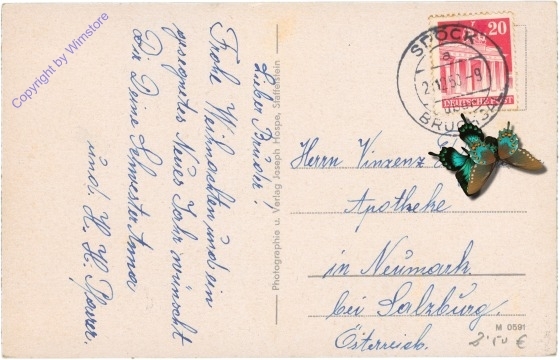 Copyright by Wimstore
Lieber Bruder!
Frohe Weihnachten und ein
gesegnetes Neues Jahr wünscht
Dir Deine Schwester Anna
und. H. H. Pfarrer.
Photographie u. Verlag Joseph Hospe, Staffelstein
20
DEUTSCHE POST
SPÖCK
a
BRUCHSAL
Herrn Vinzenz
Apotheke
in Neumark
bei Salzburg.
Österreich.
M 0591
2.50 €